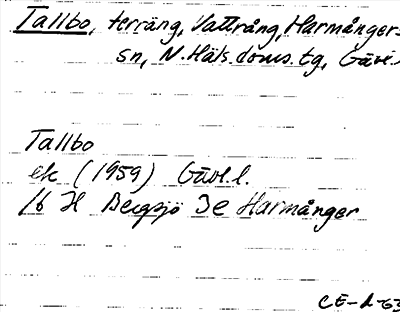 Tallbo, terräng, Vattrång, Harmångers
sn, N. Häls. doms. tg, Gävl.
Tallbo
ek (1959) Gävl. l.
16 H Bergsjö 3e Harmånger
CE-A-63